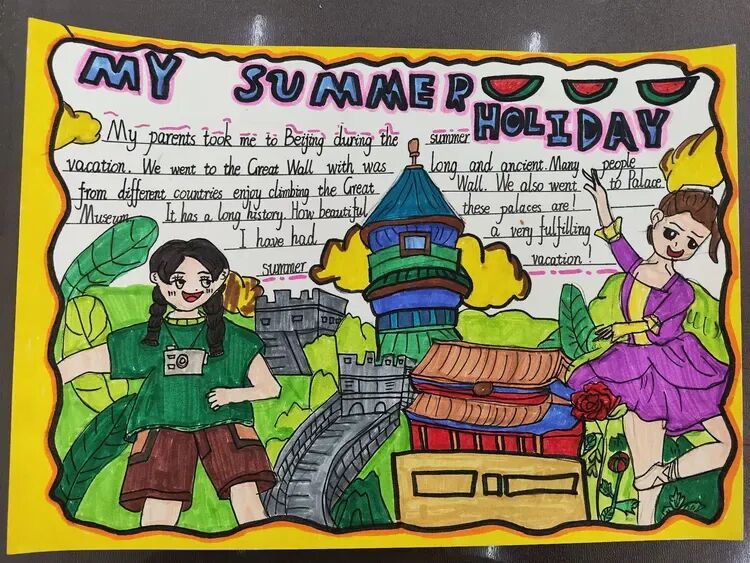 MY SUMMER HOLIDAY
My parents took me to Beijing during the summer
vacation. We went to the Great Wall with was long and ancient. Many people
from different countries enjoy climbing the Great Wall. We also went to Palace
Museum. It has a long history. How beautiful these palaces are!
I have had a very fulfilling
summer vacation!